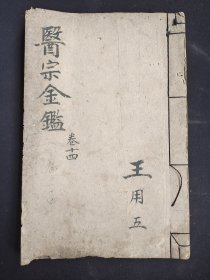 醫宗金鑑
卷十四
王用五